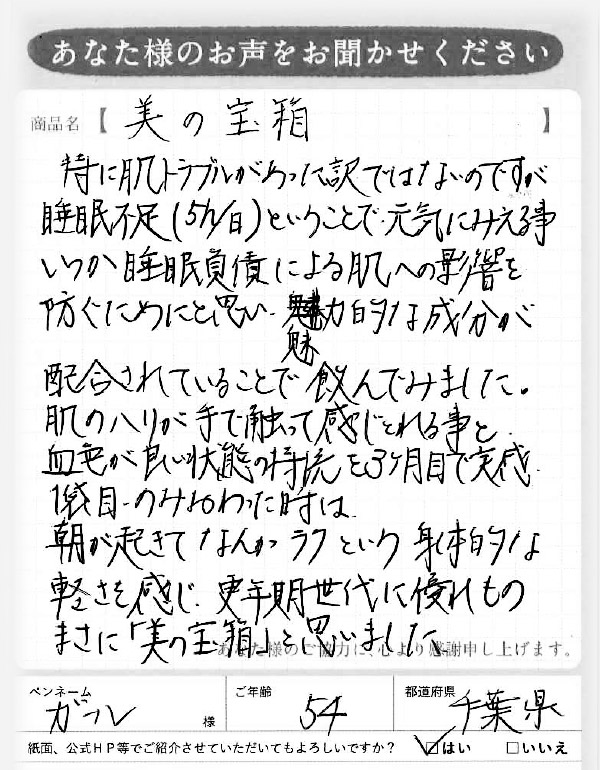 あなた様のお声をお聞かせください
商品名【 美の宝箱 】
特に肌トラブルがあった訳ではないのですが
睡眠不足(5h/日)ということで元気にみえる事
いつか睡眠負債による肌への影響を
防ぐためにと思い、魅力的な成分が
魅
配合されていることで飲んでみました。
肌のハリが手で触って感じとれる事と
血色が良い状態の持続を3ヶ月目で実感
1袋目のみおわった時は
朝が起きてなんかラクという身体的な
軽さを感じ、更年期世代に優れもの
まさに「美の宝箱」と思いました
あなた様のご協力に、心より感謝申し上げます。
ペンネーム ご年齢 都道府県
ガル 様 54 千葉県
紙面、公式HP等でご紹介させていただいてもよろしいですか? ☑はい □いいえ